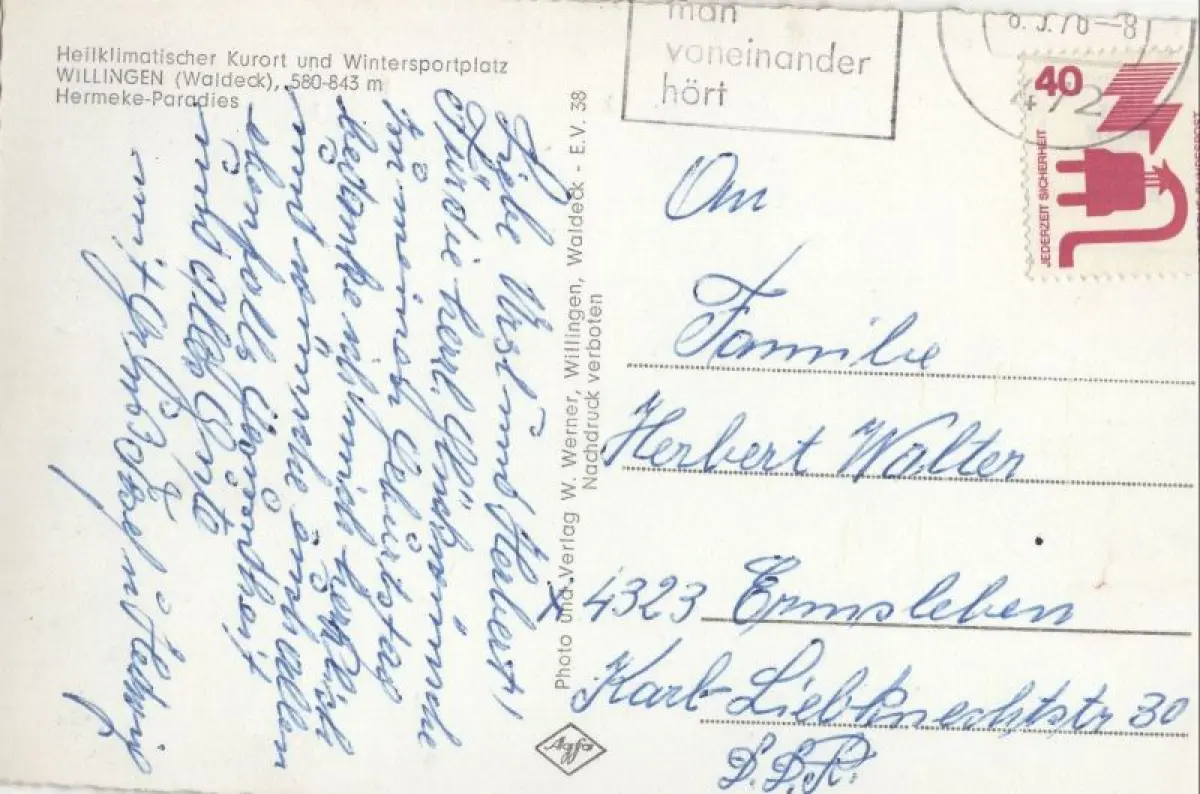 Heilklimatischer Kurort und Wintersportplatz
WILLINGEN (Waldeck), 580-843 m
Hermeke-Paradies
Liebe Ursl und Herbert!
Für die herzl. Glückwünsche
zu meinem Geburtstag
bedanke ich mich herzlich
und wünsche euch allen
ebenfalls Gesundheit
und alles Gute
mit Gruß
Hedwig
Photo und Verlag W. Werner, Willingen, Waldeck - E.V. 38
Nachdruck verboten
Agfa
man
voneinander
hört
8.5.76-8
472
40
JEDERZEIT SICHERHEIT
An
Familie
Herbert Walter
x 4323 Ermsleben
Karl-Liebknechtstr 30
D.D.R.